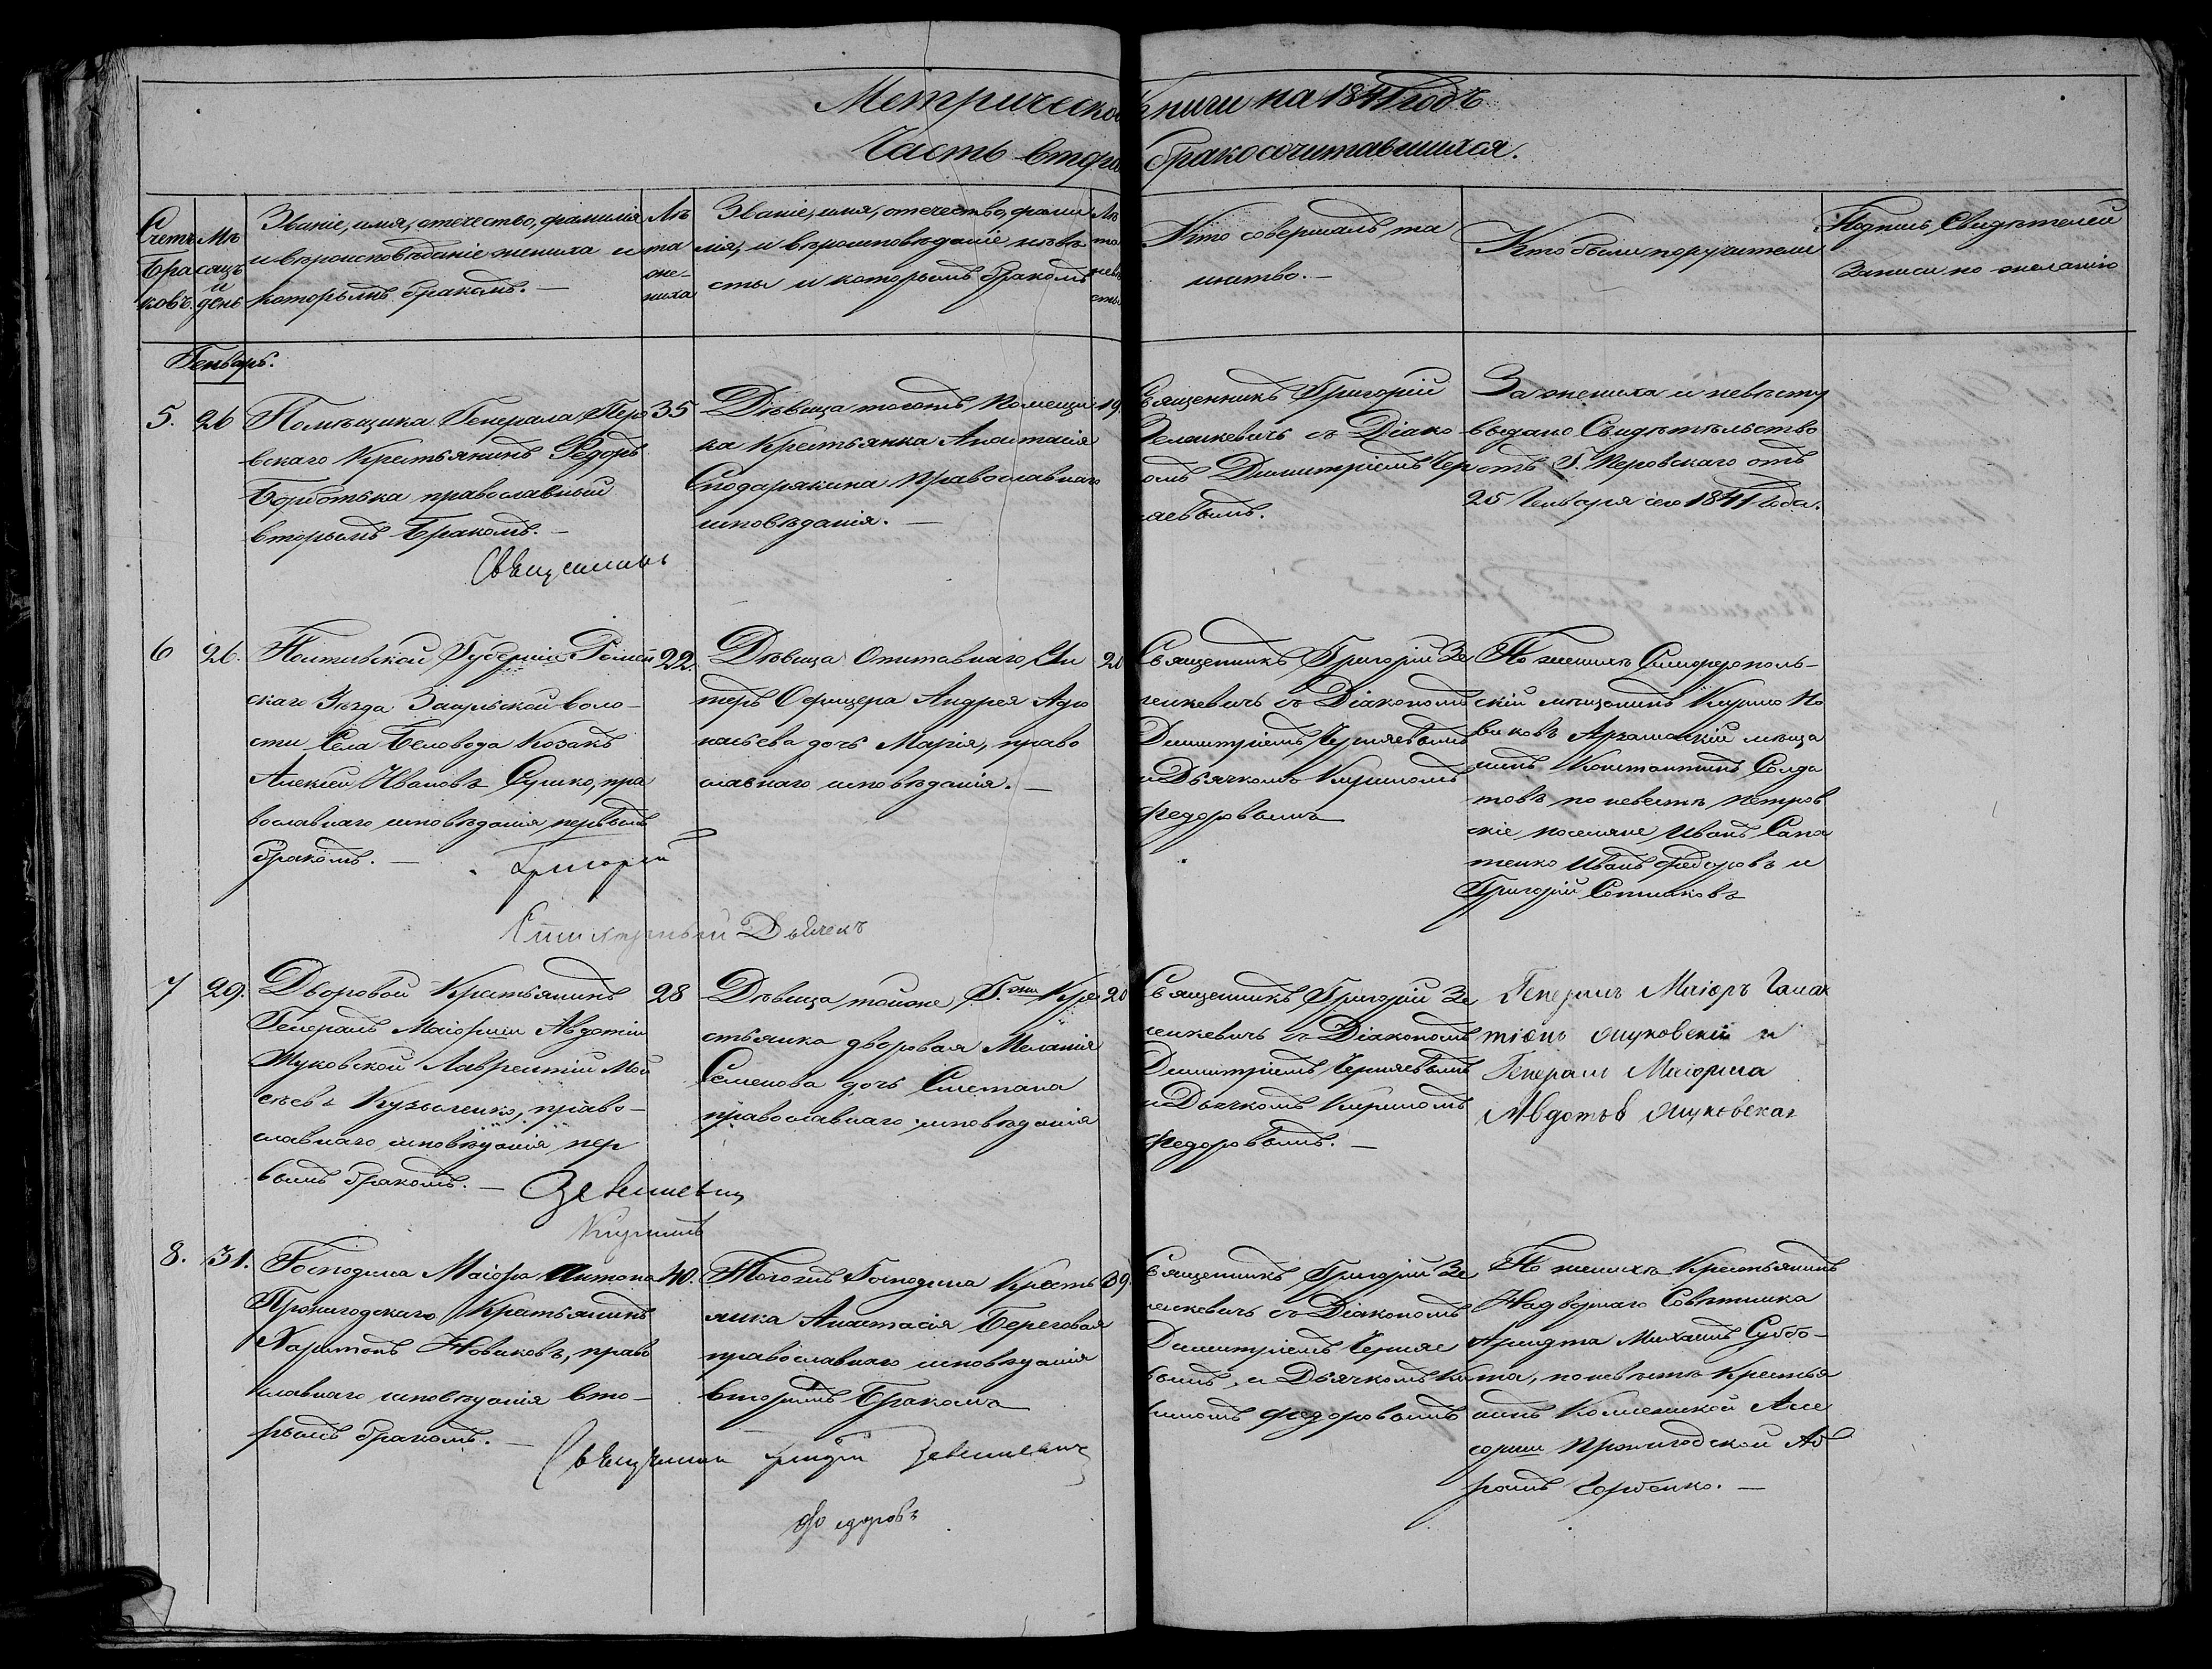 Метрической Книги на 1841 годъ
Часть вторая бракосочитавшихся.
Счетъ
бра
ковъ.
Мѣ
сяцъ
и
день
Званіе, имя, отечество, фамилія
и вѣроисповѣданіе жениха и
которымъ бракомъ. —
Лѣ
та
же-
ниха
Званіе, имя, отечество, фами
лія, и вѣроисповѣданіе невѣ
сты и которымъ бракомъ
Лѣ
та
невѣ
сты
Кто совершалъ та
инство. —
Кто были поручители
Подпись Свидѣтелей
записи по желанію
Генварь.
5.
26
Помѣщика Генерала Перо
вскаго Крестьянинъ Федоръ
православный
вторымъ бракомъ. —
35
Дѣвица тогожъ помещи
ка Крестьянка Анастасія
православнаго
исповѣданія. —
19
Священникъ Григорій
съ Діако
омъ Димитріемъ Чер
няевымъ.
За жениха и невѣсту
выдано Свидѣтельство
отъ Г. Перовскаго отъ
25 Генваря сего 1841 года.
Священникъ
6
26.
Полтавской Губерніи Ромен
скаго Уѣзда воло-
сти Села Беловода Козакъ
Алексей Ивановъ Сушко, пра
вославнаго исповѣданія первымъ
бракомъ. —
22.
Дѣвица Отставнаго Ун
теръ Офицера Андрея
дочь Марія, право
славнаго исповѣданія. —
20
Священникъ Григорій Зе
съ Діакономъ
Димитріемъ Черняевымъ
и Дьячкомъ Кириломъ
Федоровымъ
По женихѣ Симферополь-
скій мѣщанинъ Кирило Но
виковъ мѣща
нинъ Константинъ Солда
товъ по невестѣ Петров
скіе поселяне Иванъ Сапа
тенко Иванъ Федоровъ и
Григорій Сотниковъ
Григорій
Дьячекъ
7
29.
Дворовой Крестьянинъ
Генералъ Маіорши Авдотіи
Жуковской Лаврентій Мой
сѣевъ Кузьменко, право-
славнаго исповѣданія пер
вымъ бракомъ. —
28
Дѣвица тойже Г.жи Кре
стьянка дворовая Меланія
Семенова дочь Сметана
православнаго исповѣданія
20
Священникъ Григорій Зе
съ Діакономъ
Димитріемъ Черняевымъ
и Дьячкомъ Кириломъ
Федоровымъ. —
Генералъ Маіоръ Галак
тіонъ Жуковскій и
Генералъ Маіорша
Авдотья Жуковская
Кирилъ
8.
31.
Господина Маіора Антона
Пронигодскаго Крестьянинъ
Харитонъ Новиковъ, право
славнаго исповѣданія вто-
рымъ бракомъ. —
40.
Тогожъ Господина Кресть
янка Анастасія Береговая
православнаго исповѣданія
вторымъ бракомъ
39
Священникъ Григорій Зе
съ Діакономъ
Димитріемъ Черняе
вымъ, и Дьячкомъ Ки
риломъ Федоровымъ
По женихѣ Крестьянинъ
Надворнаго Совѣтника
Арндта Михаилъ Суббо-
та, по невѣстѣ Крестья
нинъ Колежской Асе
сорши Пронигодской Аб
рамъ Горбенко. —
Священникъ Григорій
Федоровъ